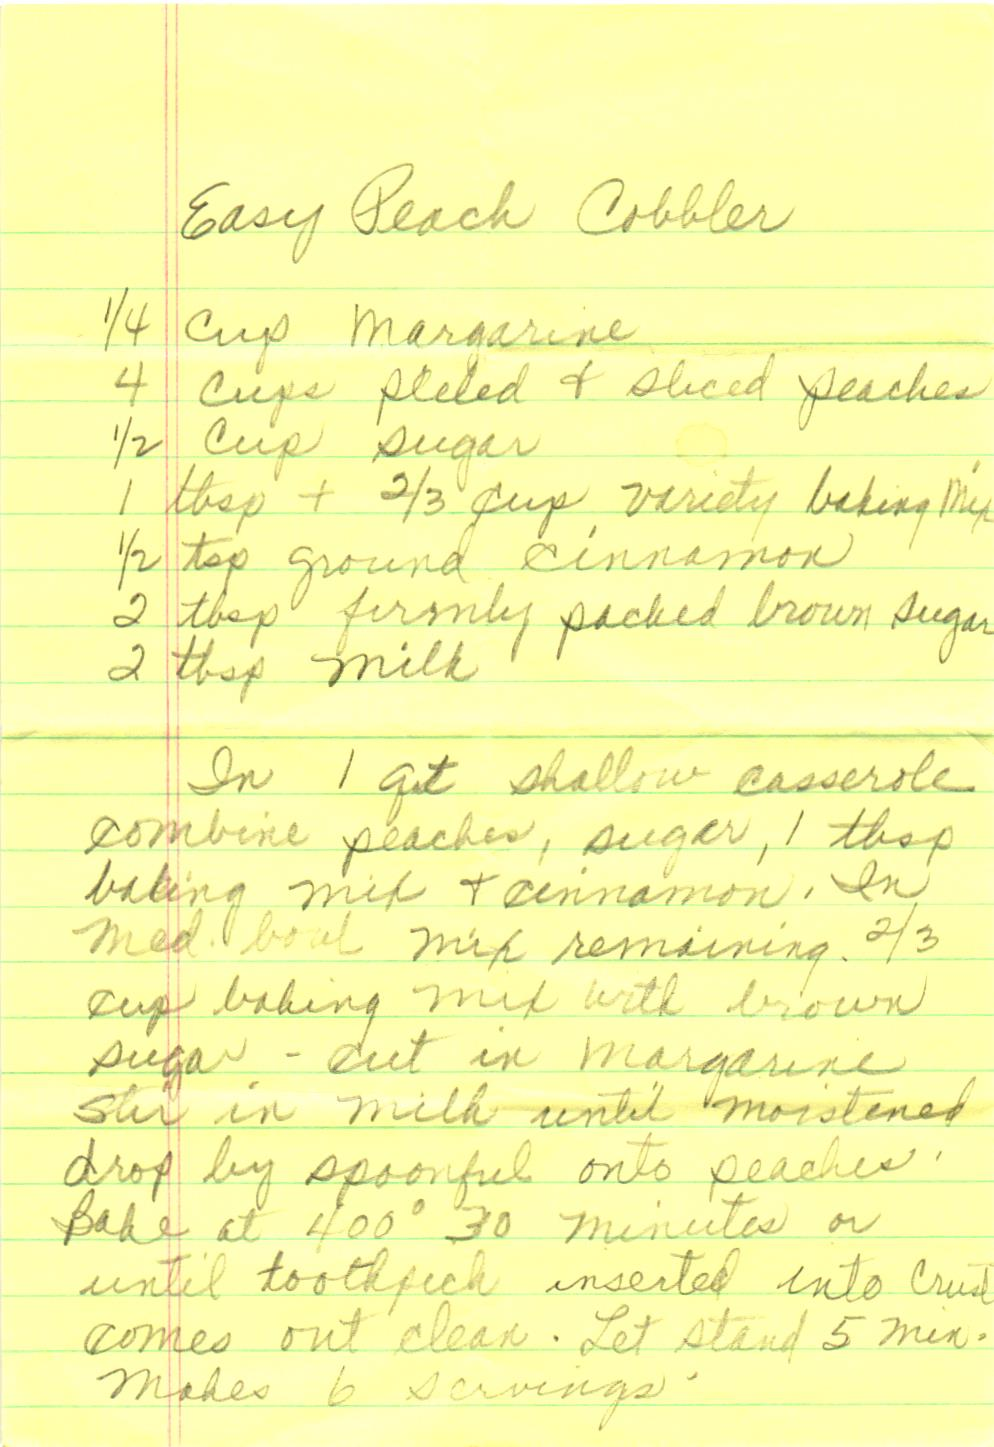 Easy Peach Cobbler
1/4 cup Margarine
4 cups peeled & sliced peaches
1/2 cup sugar
1 tbsp + 2/3 cup variety baking Mix
1/2 tsp ground cinnamon
2 tbsp firmly packed brown sugar
2 tbsp milk
In 1 qt shallow casserole
combine peaches, sugar, 1 tbsp
baking mix + cinnamon. In
med. bowl mix remaining 2/3
cup baking mix with brown
sugar - cut in Margarine
Stir in milk until moistened
drop by spoonful onto peaches.
Bake at 400° 30 minutes or
until toothpick inserted into Crust
comes out clean. Let stand 5 min.
Makes 6 servings.